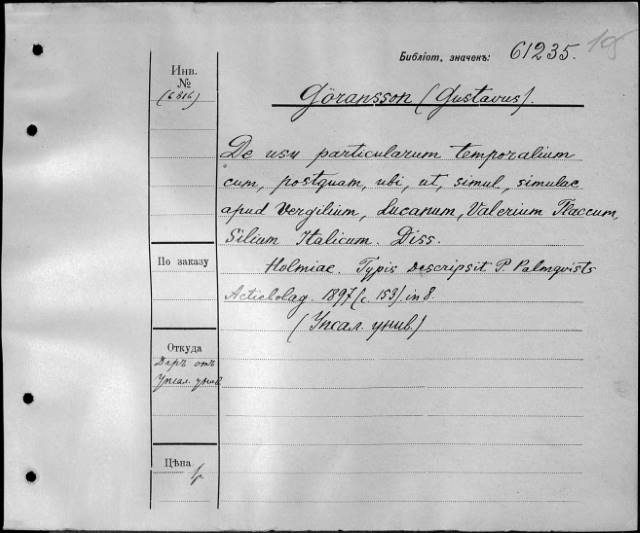 Библіот. значекъ: 61235. 15
Инв.
№
(6816)
Göransson (Gustavus).
De usu particularum temporalium
cum, postquam, ubi, ut, simul, simulac
apud Vergilium, Lucanum, Valerium Flaccum,
Silium Italicum. Diss.
По заказу
Holmiae. Typis descripsit P. Palmqvists
Actiebolag. 1897 (с. 153) in 8.
(Упсал. унив.)
Откуда
Даръ отъ
Упсал. унив.
Цѣна